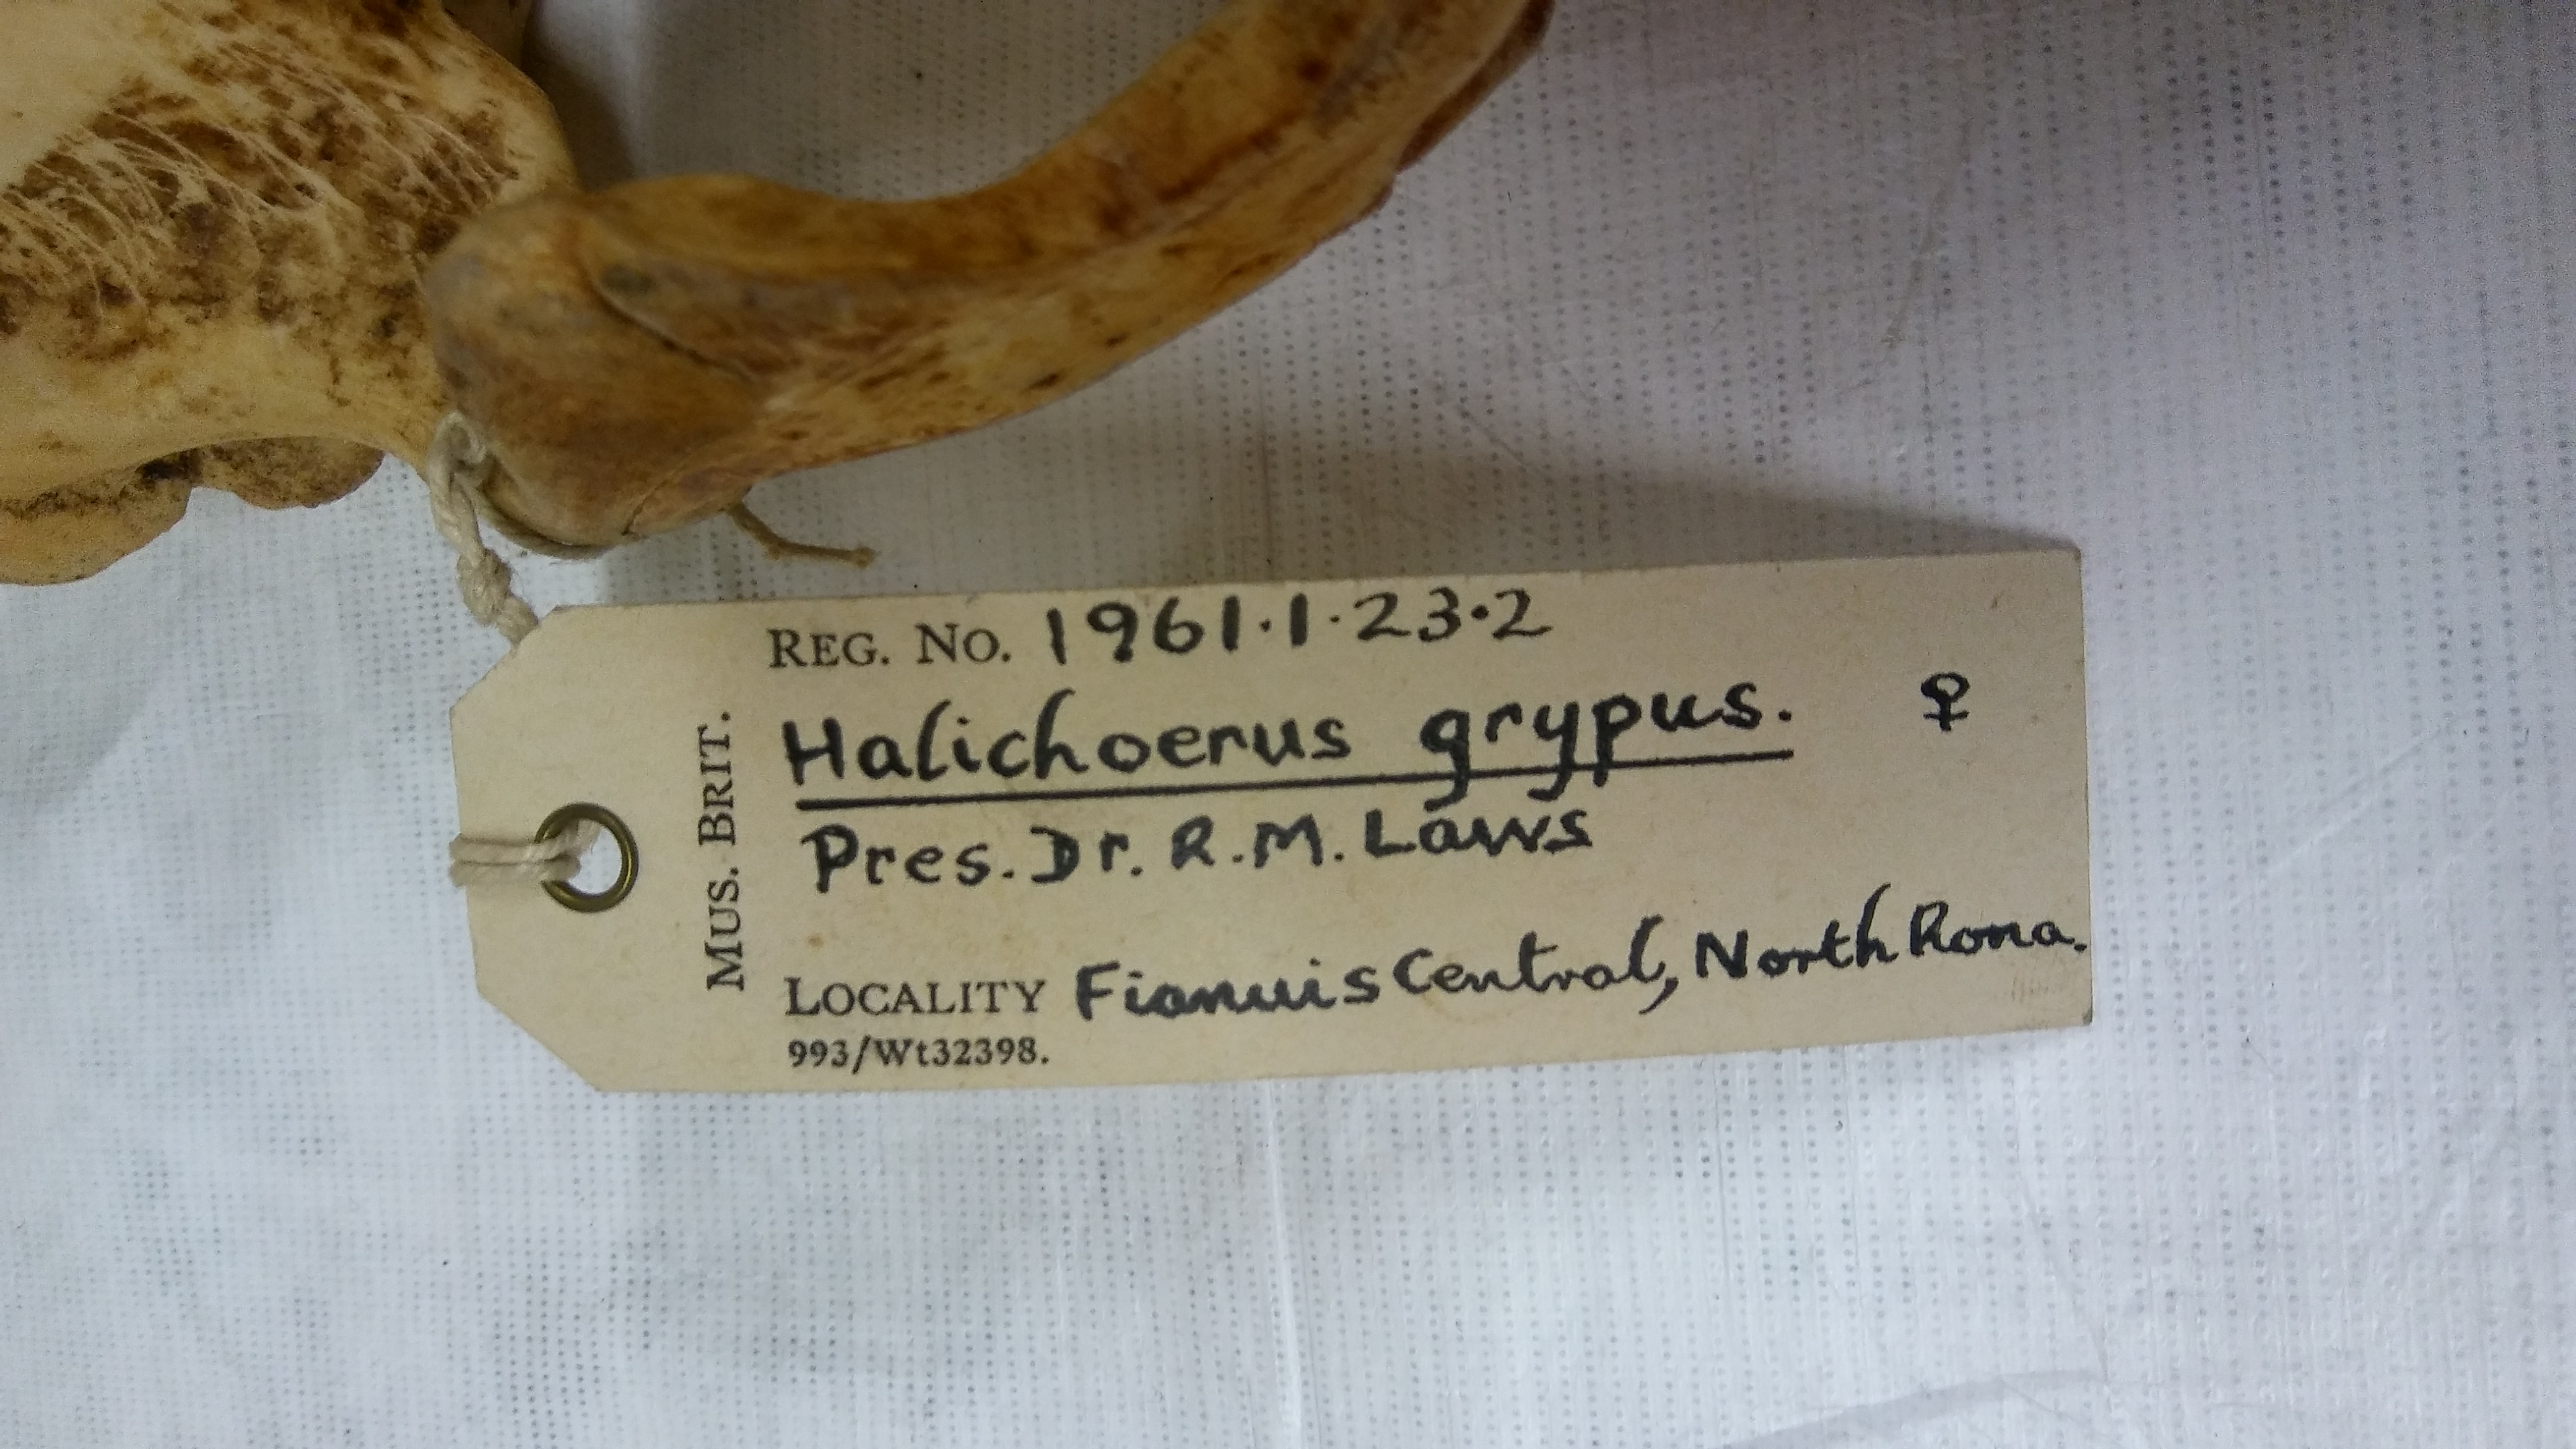 MUS. BRIT.
REG. NO. 1961.1.23.2
Halichoerus grypus. ♀
Pres. Dr. R.M. Laws
LOCALITY Fianuis Central, North Rona.
993/Wt32398.